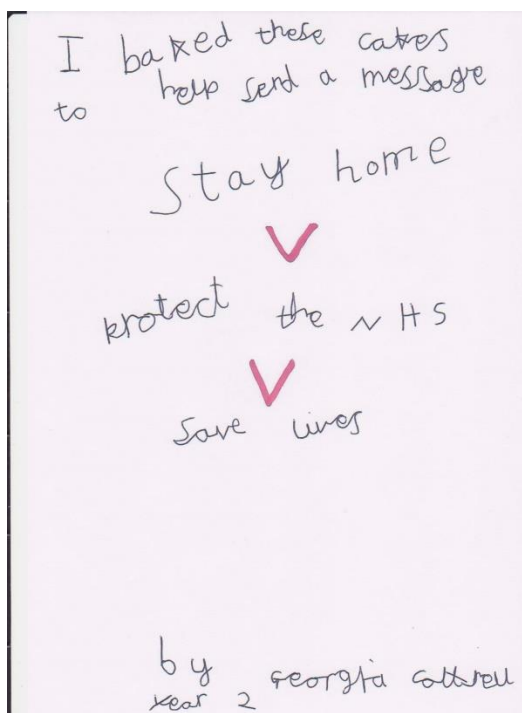 I baked these cakes
to help send a message
Stay home
protect the NHS
save lives
by Georgia Cottrell
year 2